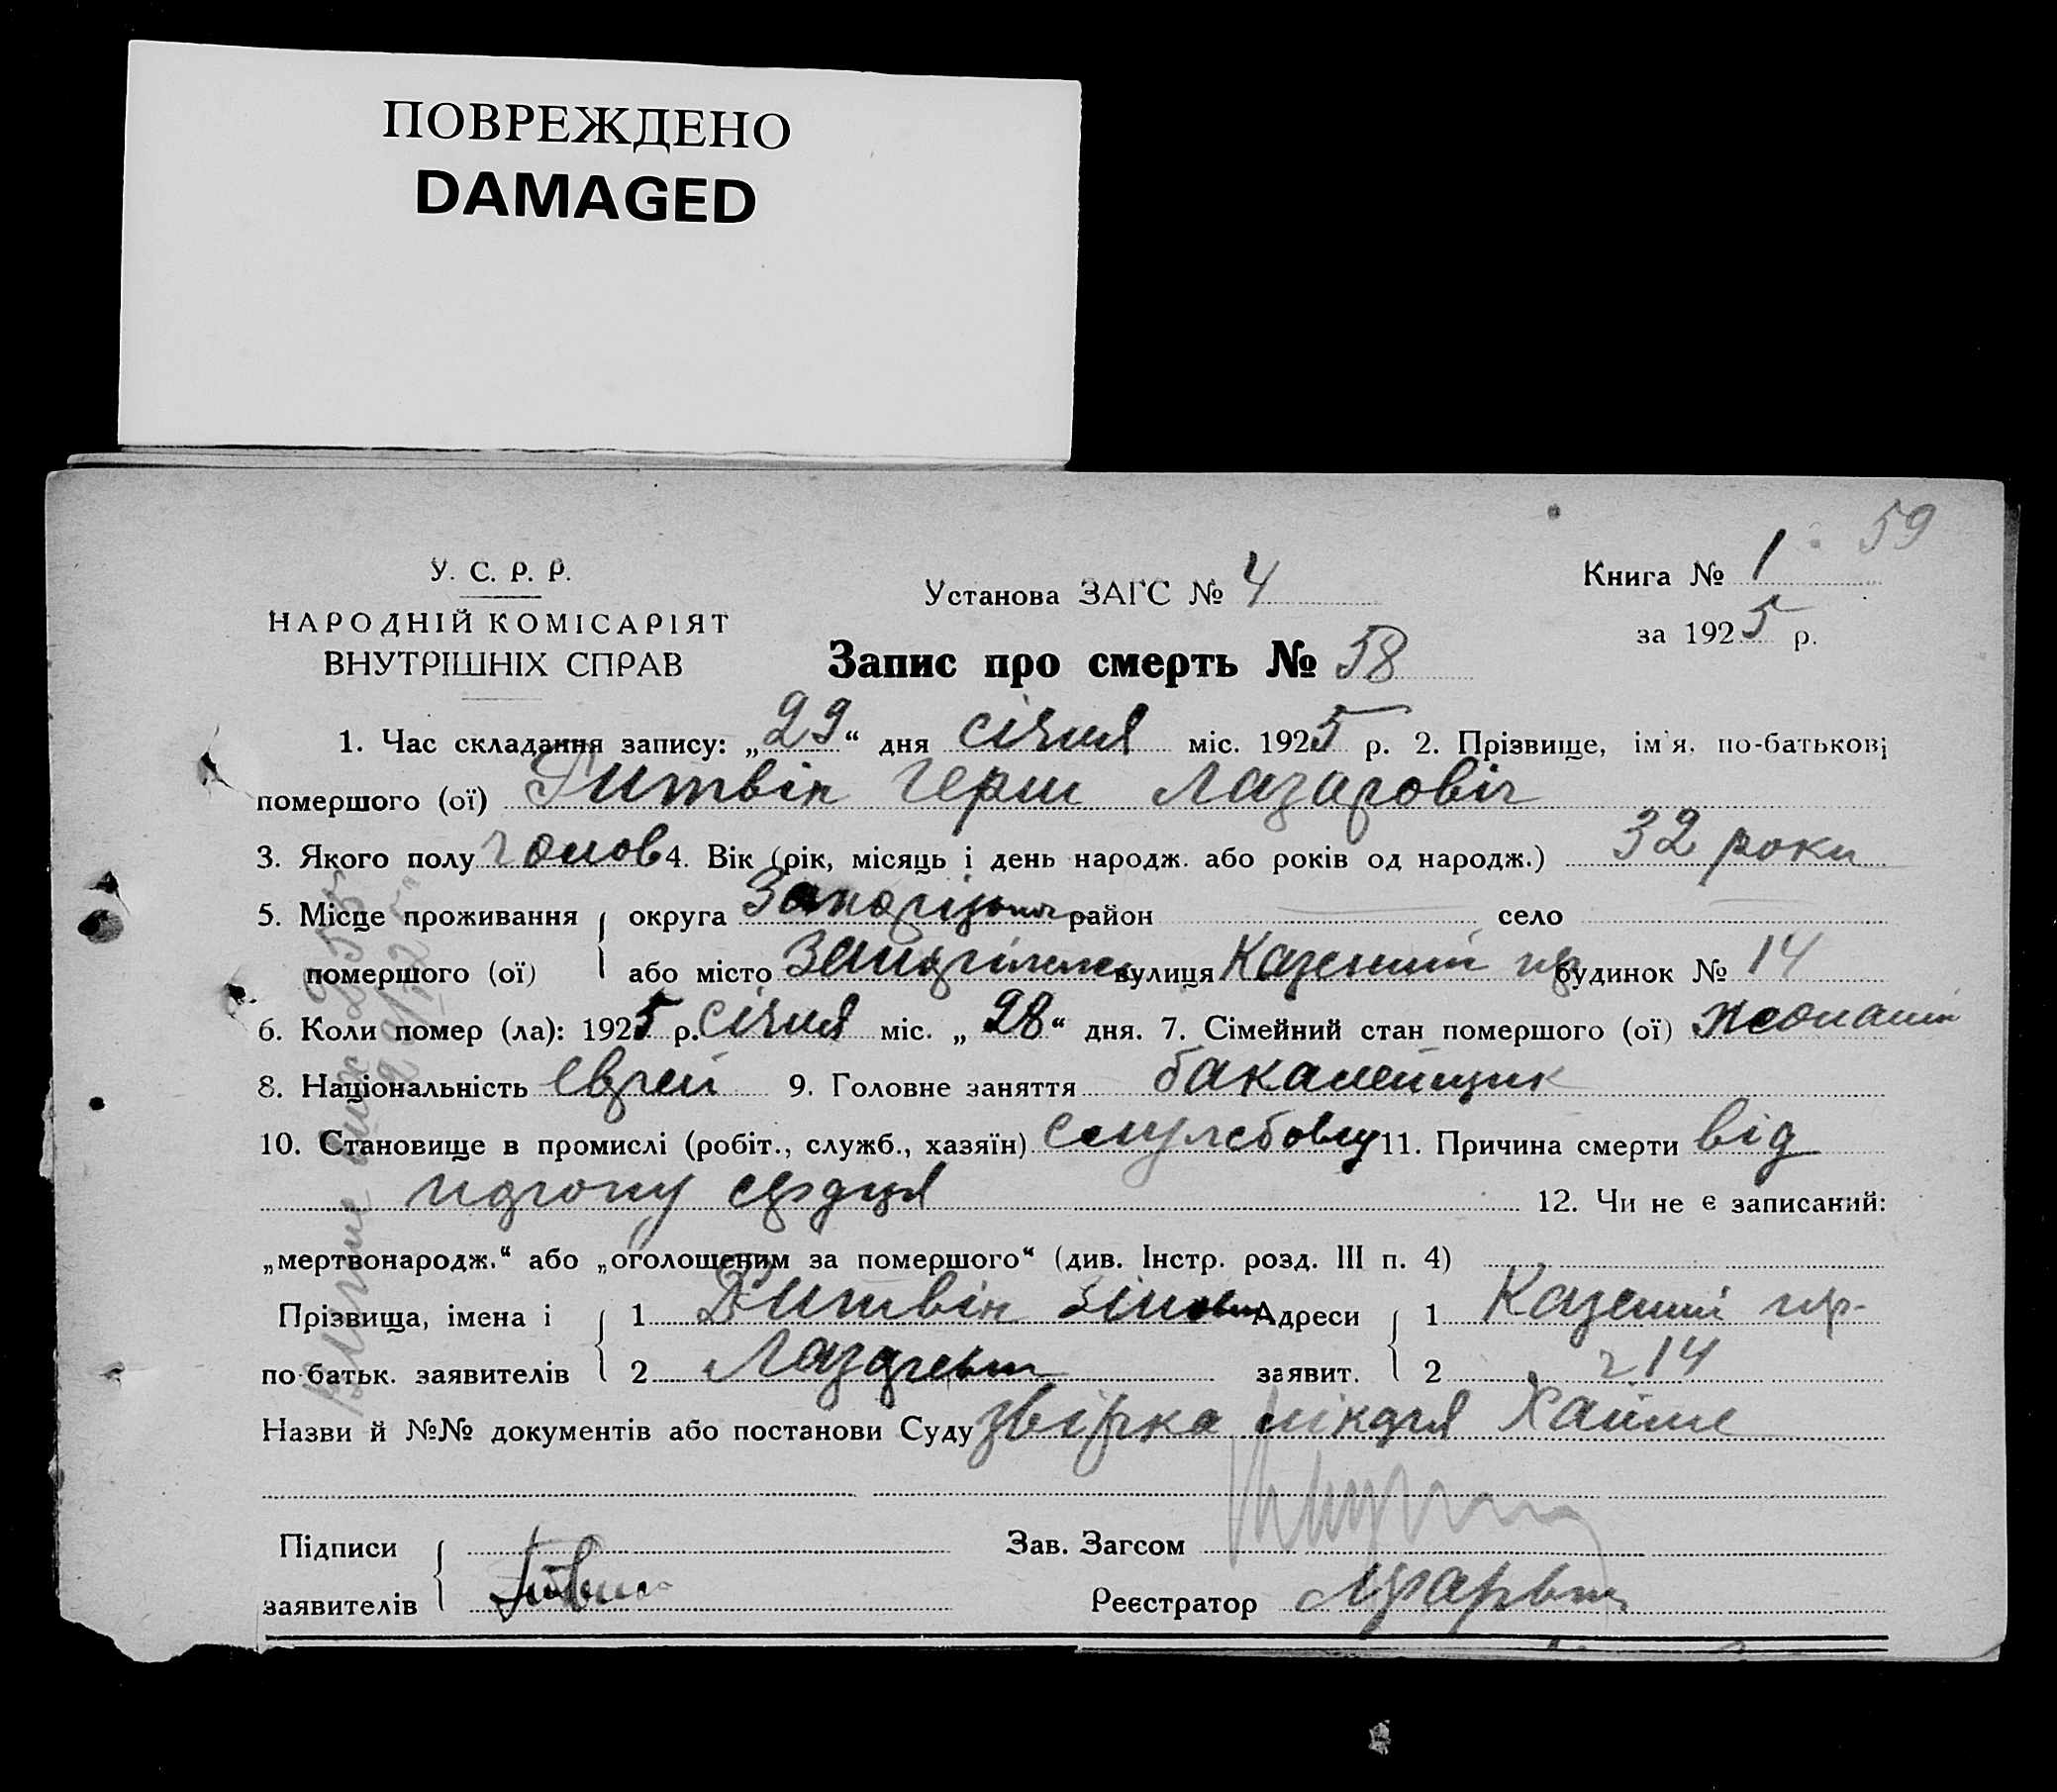 ПОВРЕЖДЕНО
DAMAGED
59
У. С. Р. Р.
НАРОДНІЙ КОМІСАРІЯТ
ВНУТРІШНІХ СПРАВ
Установа ЗАГС № 4
Книга № 1
за 1925 р.
Запис про смерть № 58
1. Час складання запису: „29“ дня січня міс. 1925 р. 2. Прізвище, ім'я, по-батькові
помершого (ої) Гитвін Герш Лазаровіч
3. Якого полу чолов 4. Вік (рік, місяць і день народж. або років од народж.) 32 роки
5. Місце проживання округа район село
помершого (ої) або місто вулиця Казенний пр будинок № 14
6. Коли помер (ла): 1925 р. січня міс. „28“ дня. 7. Сімейний стан помершого (ої)
8. Національність Єврей 9. Головне заняття бакалейщик
10. Становище в промислі (робіт., служб., хазяїн) 11. Причина смерти від
сердця 12. Чи не є записаний:
„мертвонародж.“ або „оголошеним за помершого“ (див. Інстр. розд. III п. 4)
Прізвища, імена і 1 Гитвін Адреси 1 Казенний пр.
по батьк. заявителів 2 заявит. 2 14
Назви й №№ документів або постанови Суду лікаря
Підписи Зав. Загсом
заявителів Реєстратор